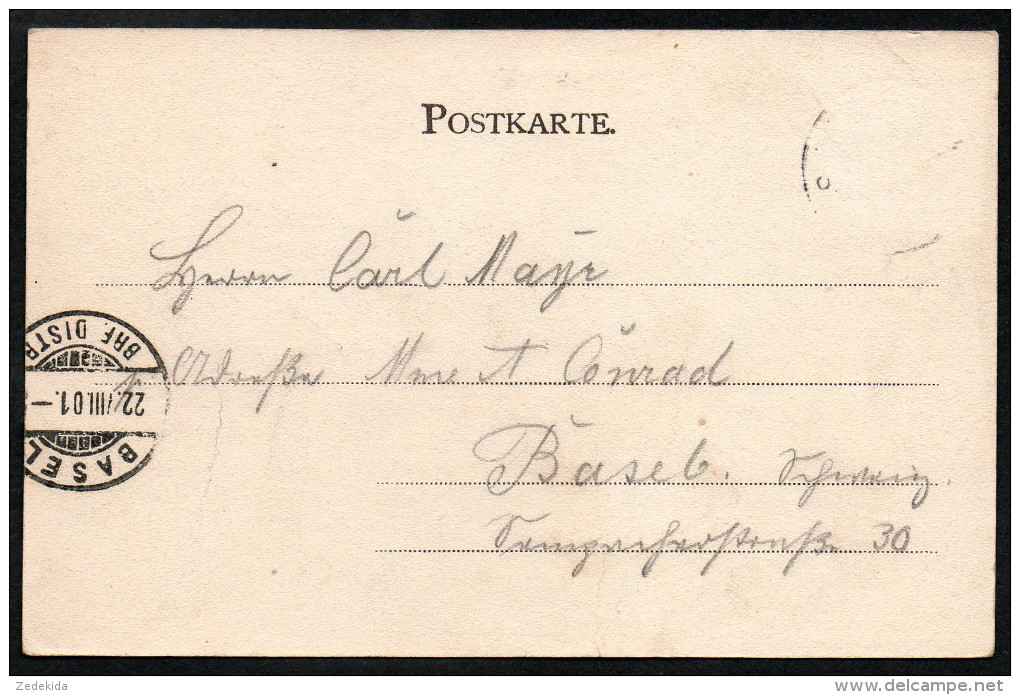 POSTKARTE.
Herrn Carl Mayr
Adreße Mme A Conrad
Basel. Schweiz.
Sempacherstraße 30
BRF. DISTR
22.VIII.01.–
BASEL
Zedekida
delcampe.net